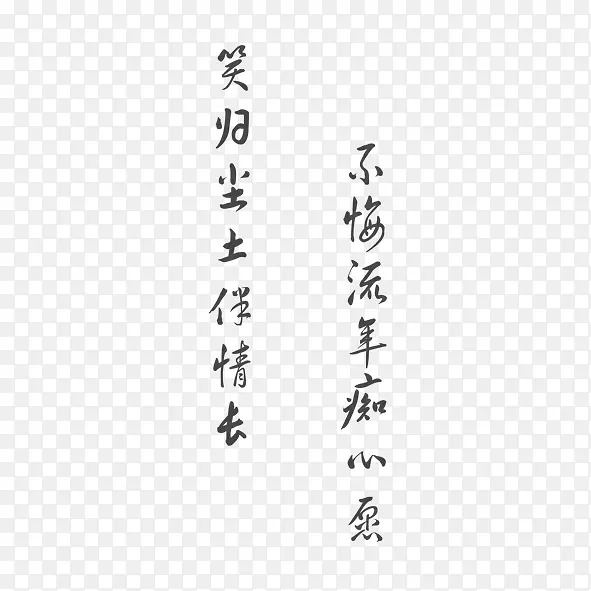 不悔流年痴心愿
笑归尘土伴情长